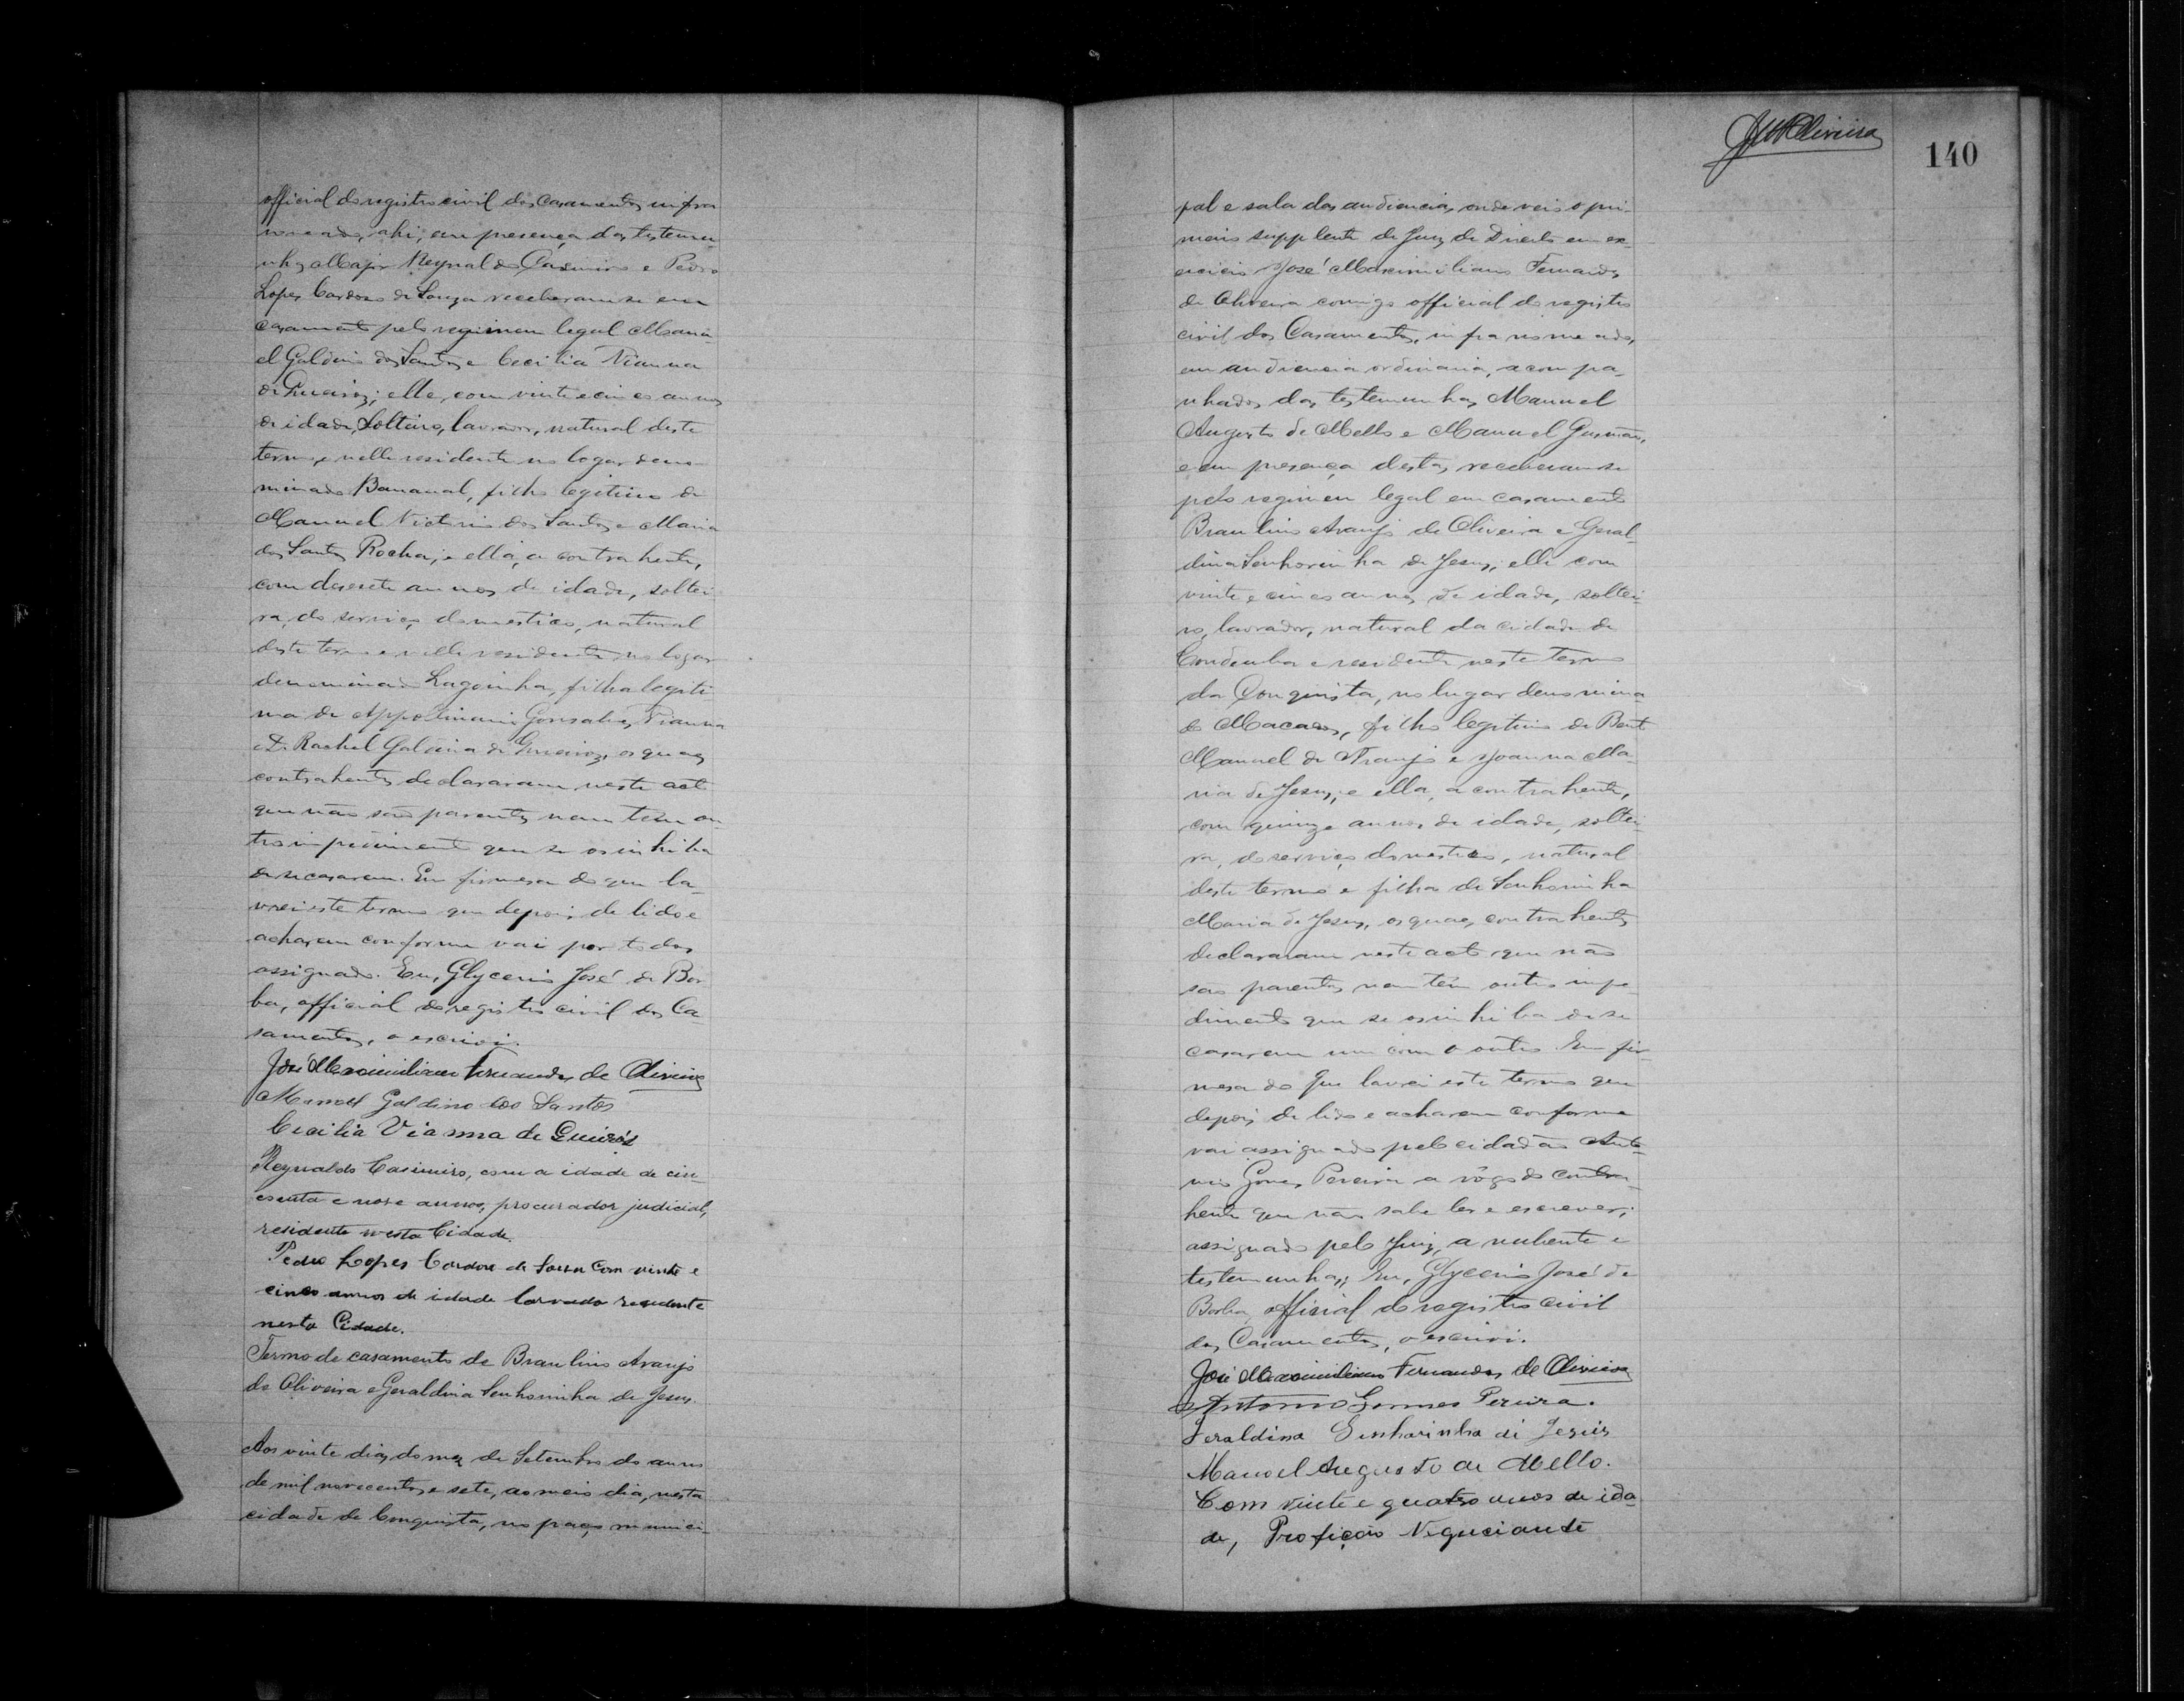 official do registro civil dos casamentos infra
nomeado, ahi, em presença das testemu-
nhas Major Reynaldo Casimiro e Pedro
Lopes Cardoso de Souza receberam-se em
casamento pelo regimen legal Manu-
el Galdino dos Santos e Cecilia Vianna
de Queiroz; elle, com vinte e cinco annos
de idade, solteiro, lavrador, natural deste
termo, e nelle residente no logar deno-
minado Bananal, filho legitimo de
Manuel Victorio dos Santos e Maria
dos Santos Rocha; e ella, a contrahente,
com desesete annos de idade, soltei-
ra, do serviço domestico, natural
deste termo e nelle residente no logar
denominado Lagoinha, filha legiti-
ma de Appolinario Gonsalves Vianna
e D. Rachel Galdina de Queiroz, os quaes
contrahentes declararam neste acto
que não são parentes nem têm ou-
tro impedimento que se os inhiba
de se casarem. Em firmesa do que la-
vrei este termo que depois de lido e
acharem conforme vai por todos
assignado. Eu, Glycerio José de Bor-
ba, official do registro civil dos Ca-
samentos, o escrivi.
José Maximiliano Fernandes de Oliveira
Manoel Galdino dos Santos
Cecilia Vianna de Queirós
Reynaldo Casimiro, com a idade de cin-
coenta e nove annos, procurador judicial,
residente nesta Cidade.
Pedro Lopes Cardoso de Souza com vinte e
cinco annos de idade lavrado residente
nesta Cidade.
Termo de casamento de Braulino Araujo
de Oliveira e Geraldina Senhorinha de Jesus.
Aos vinte dias do mez de Setembro do anno
de mil novecentos e sete, ao meio dia, nesta
cidade de Conquista, no paço munici-
140
pal e sala das audiencias, onde veio o pri-
meiro supplente do Juiz de Direito em ex-
ercicio José Maximiliano Fernandes
de Oliveira comigo official do registro
civil dos Casamentos, infra nomeado,
em audiencia ordinaria, acompa-
nhados das testemunhas Manuel
Augusto de Mello e Manuel Gusmão,
e em presença destas, receberam-se
pelo regimen legal em casamento
Braulino Araujo de Oliveira e Geral-
dina Senhorinha de Jesus; elle com
vinte e cinco annos de idade, soltei-
ro, lavrador, natural da cidade de
Condeuba e residente neste termo
da Conquista, no lugar denomina-
do Macacos, filho legitimo de Bento
Manuel de Araujo e Joanna Ma-
ria de Jesus; e ella, a contrahente,
com quinze annos de idade, soltei-
ra, do serviço domestico, natural
deste termo e filha de Senhorinha
Maria de Jesus, os quaes contrahentes
declararam neste acto que não
são parentes nem têm outro impe-
dimento que se os inhiba de se
casarem um com o outro. Em fir-
mesa do que lavrei este termo que
depois de lido e acharem conforme
vai assignado pelo cidadão Anto-
nio Gomes Pereira a rôgo do contra-
hente que não sabe ler e escrever;
assignado pelo Juiz, a nubente e
testemunhas; Eu, Glycerio José de
Borba, official do registro civil
dos Casamentos, o escrivi.
José Maximiliano Fernandes de Oliveira
Antonio Gomes Pereira.
Geraldina Senharinha di Jesús
Manoel Augusto de Mello.
Com vinte e quatro anos de ida-
de, Profiçaõ Neguciante